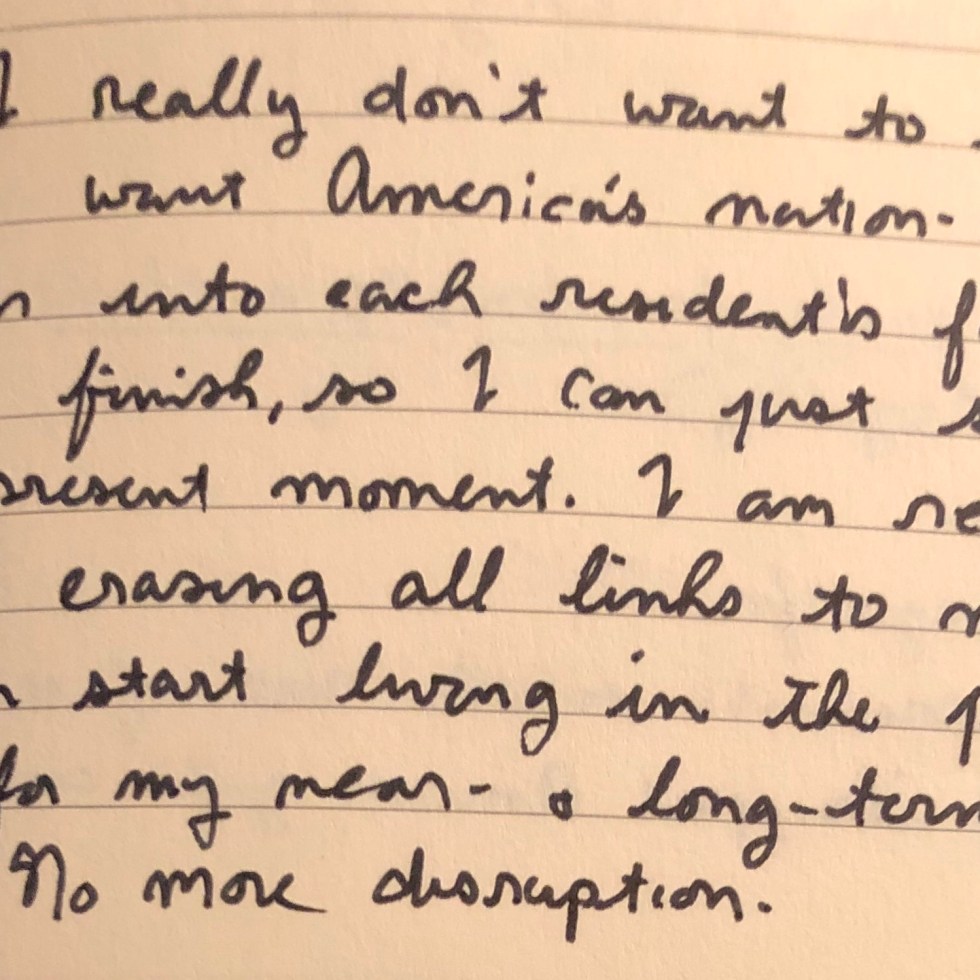 I really don't want to
want America's nation-
into each resident's
finish, so I can just
present moment. I am
erasing all links to
start living in the
for my near- & long-term
No more disruption.